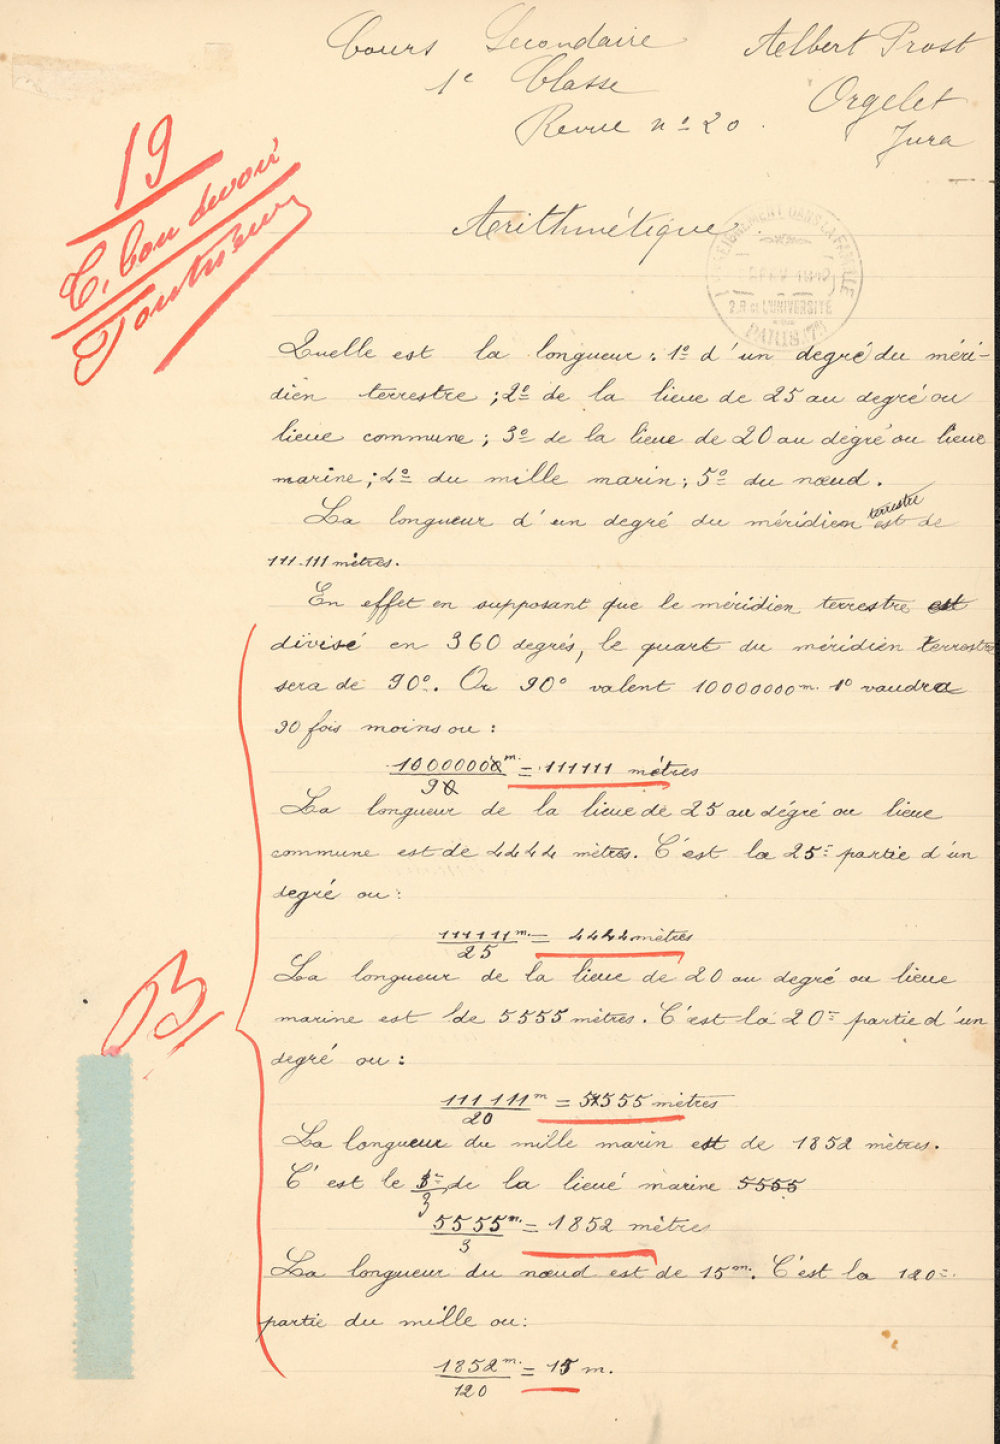 Cours Secondaire
1e Classe
Revue nº 20.
Albert Prost
Orgelet
Jura
19
T. bon devoir
Arithmétique.
ENSEIGNEMENT DANS LA FAMILLE
2.R de L'UNIVERSITÉ
PARIS (7e)
Quelle est la longueur : 1º d'un degré du méri-
dien terrestre ; 2º de la lieue de 25 au degré ou
lieue commune ; 3º de la lieue de 20 au degré ou lieue
marine ; 4º du mille marin ; 5º du nœud.
La longueur d'un degré du méridien terrestre est de
111.111 mètres.
En effet en supposant que le méridien terrestre est
divisé en 360 degrés, le quart du méridien terrestre
sera de 90º. Or 90º valent 10000000m. 1º vaudra
90 fois moins ou :
10000000m. / 90 = 111111 mètres
La longueur de la lieue de 25 au dégré ou lieue
commune est de 4444 mètres. C'est la 25e partie d'un
degré ou :
111111m. / 25 = 4444 mètres
La longueur de la lieue de 20 au degré ou lieue
marine est de 5555 mètres. C'est la 20e partie d'un
degré ou :
03
111 111m / 20 = 5555 mètres
La longueur du mille marin est de 1852 mètres.
C'est le 1/3 de la lieue marine 5555
5555m. / 3 = 1852 mètres
La longueur du nœud est de 15m. C'est la 120e
partie du mille ou :
1852m. / 120 = 15 m.